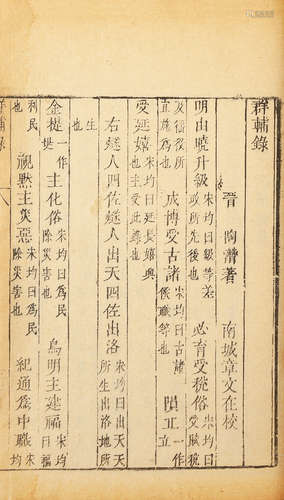 羣輔錄
晉 陶潛著 南城章文在校
明由曉升級 宋均曰級等差政所先後也 必育受稅俗 宋均曰受賦稅
及徭役所施爲也 成博受古諸 宋均曰古諸侯職等也 隕丘 一作立
受延嬉 宋均曰延長嬉興也主受此錄也
右燧人四佐燧人出天四佐出洛 宋均曰出天所生出洛地所
生也
金提 一作堤 主化俗 宋均曰爲民除災害也 鳥明主建福 宋均曰福
利民也 視默主災惡 宋均曰爲民除災害也 紀通爲中職 宋均